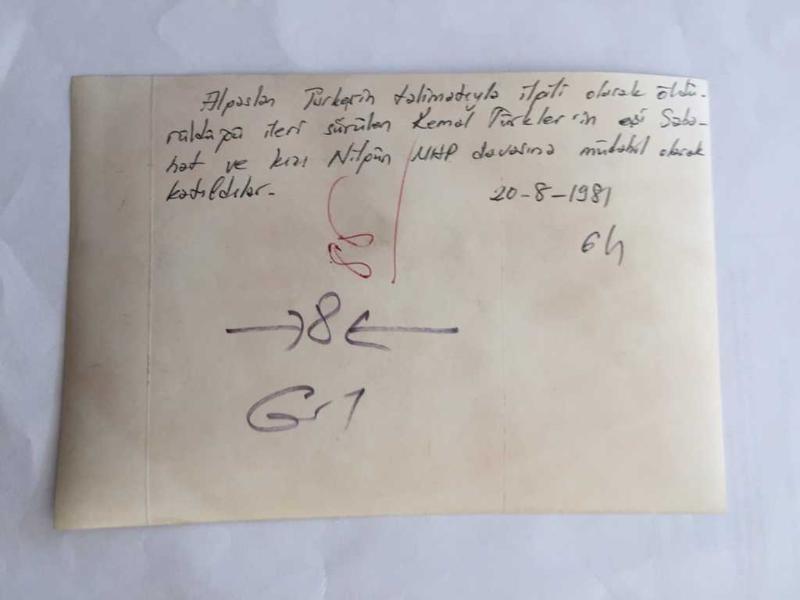 Alpaslan Türkeşin talimatıyla ilgili olarak öldü-
rüldüğü ileri sürülen Kemal Türkler'in eşi Saba-
hat ve kızı Nilgün MHP davasına müdahil olarak
katıldılar.
20-8-1981
8
→8←
Gr 1